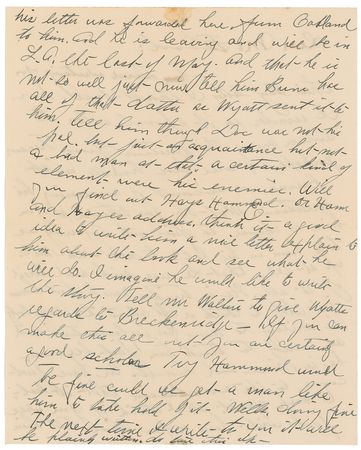 his letter was forwarded here from Oakland
to him. And he is leaving and will be in
L.A. the last of May. and that he is
not so well just now tell him Burns has
all of that data as Wyatt sent it to
him. tell him though Doc was not his
pal. but just an acquaintance but not
a bad man at that. a certain kind of
element were his enemies. Will
you find out Hays Hammond. 
and Hayes address, think it a good
idea to write him a nice letter explain to
him about the book and see what he
will do. I imagine he would like to write
the story. Tell Mr Walters to give Wyatts
regards to Breckenridge — If you can
make this all out you are certainly
a good scholar Try Hammond would
be fine could we get a man like
him to take hold of it. Well, 
The next time I write to you it will
be plainly written.